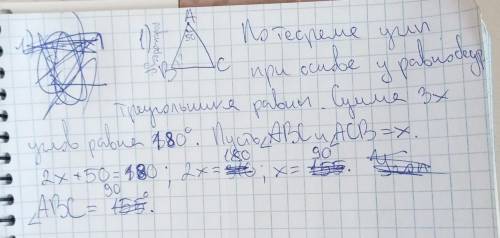 1) A По теореме углы
50
B C при основе у равнобедр
треугольника равны. Сумма 3х
углов равна 180°. Пусть ∠ABC и ∠ACB = x.
2x + 50 = 180; 2x = 180; x = 90.
∠ABC = 90°.